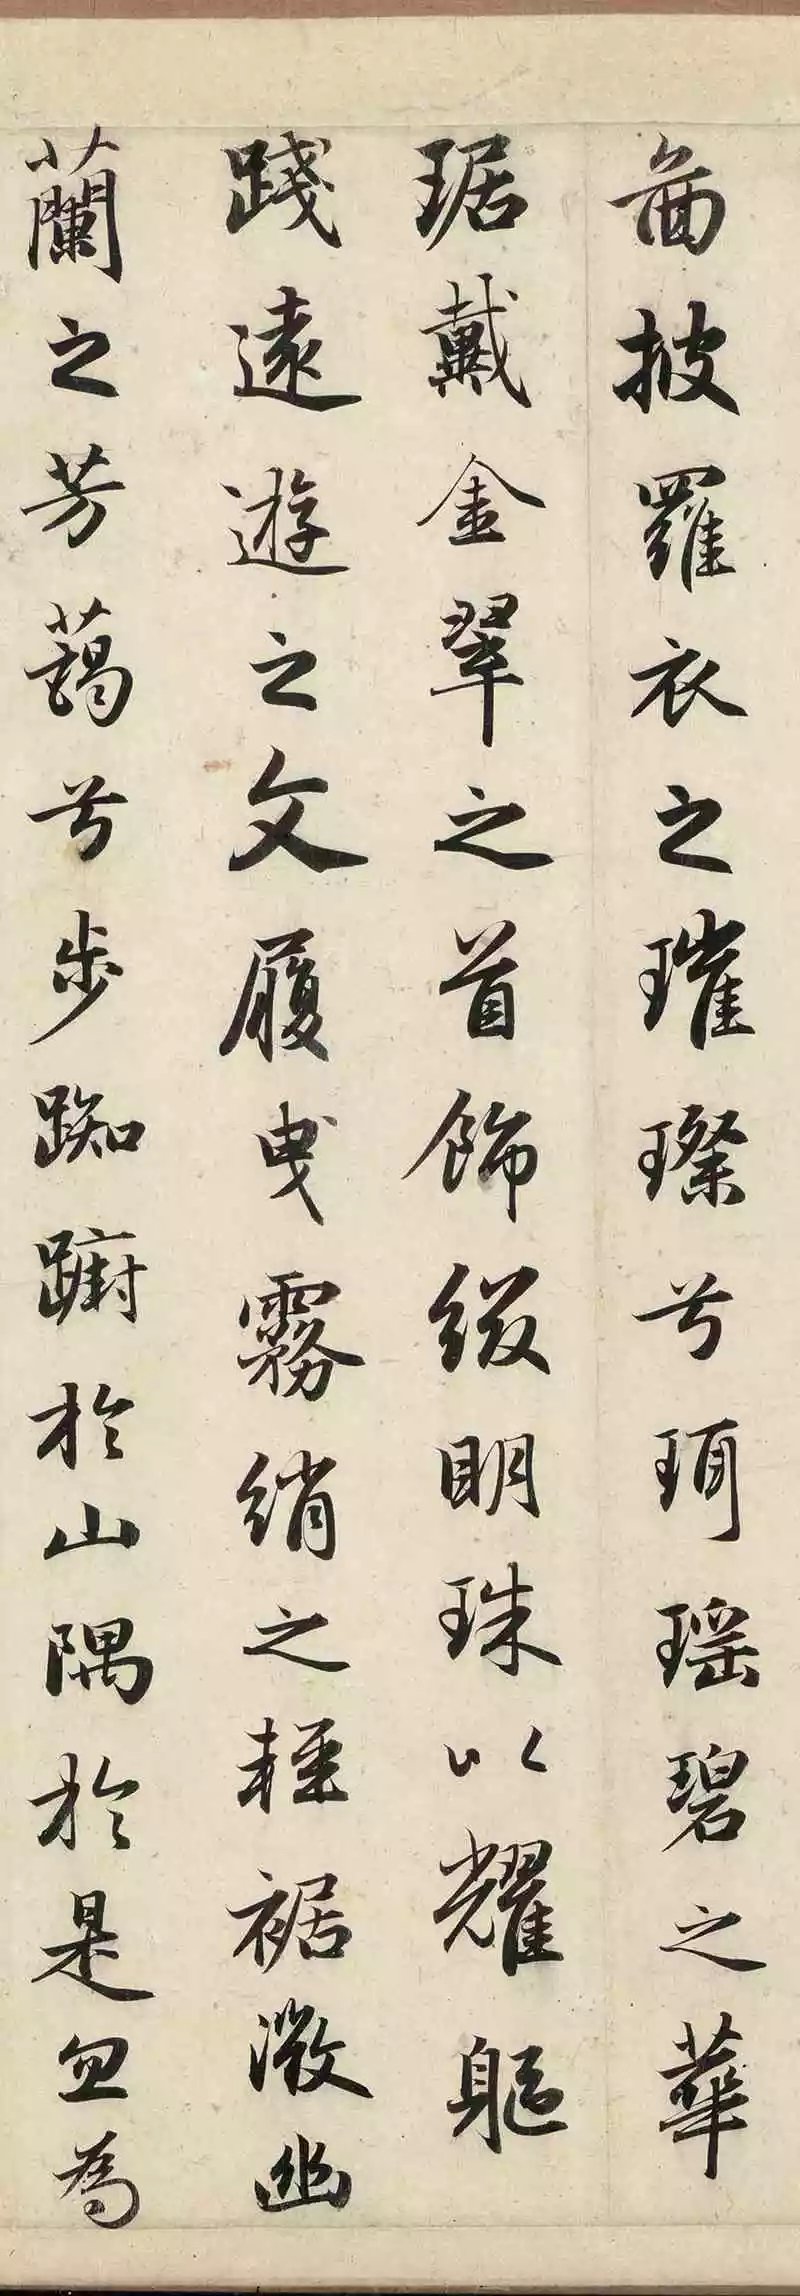 面披羅衣之璀璨兮珥瑤碧之華
琚戴金翠之首飾綴明珠以耀軀
踐遠遊之文履曳霧綃之輕裾微幽
蘭之芳藹兮步踟躕於山隅於是忽焉